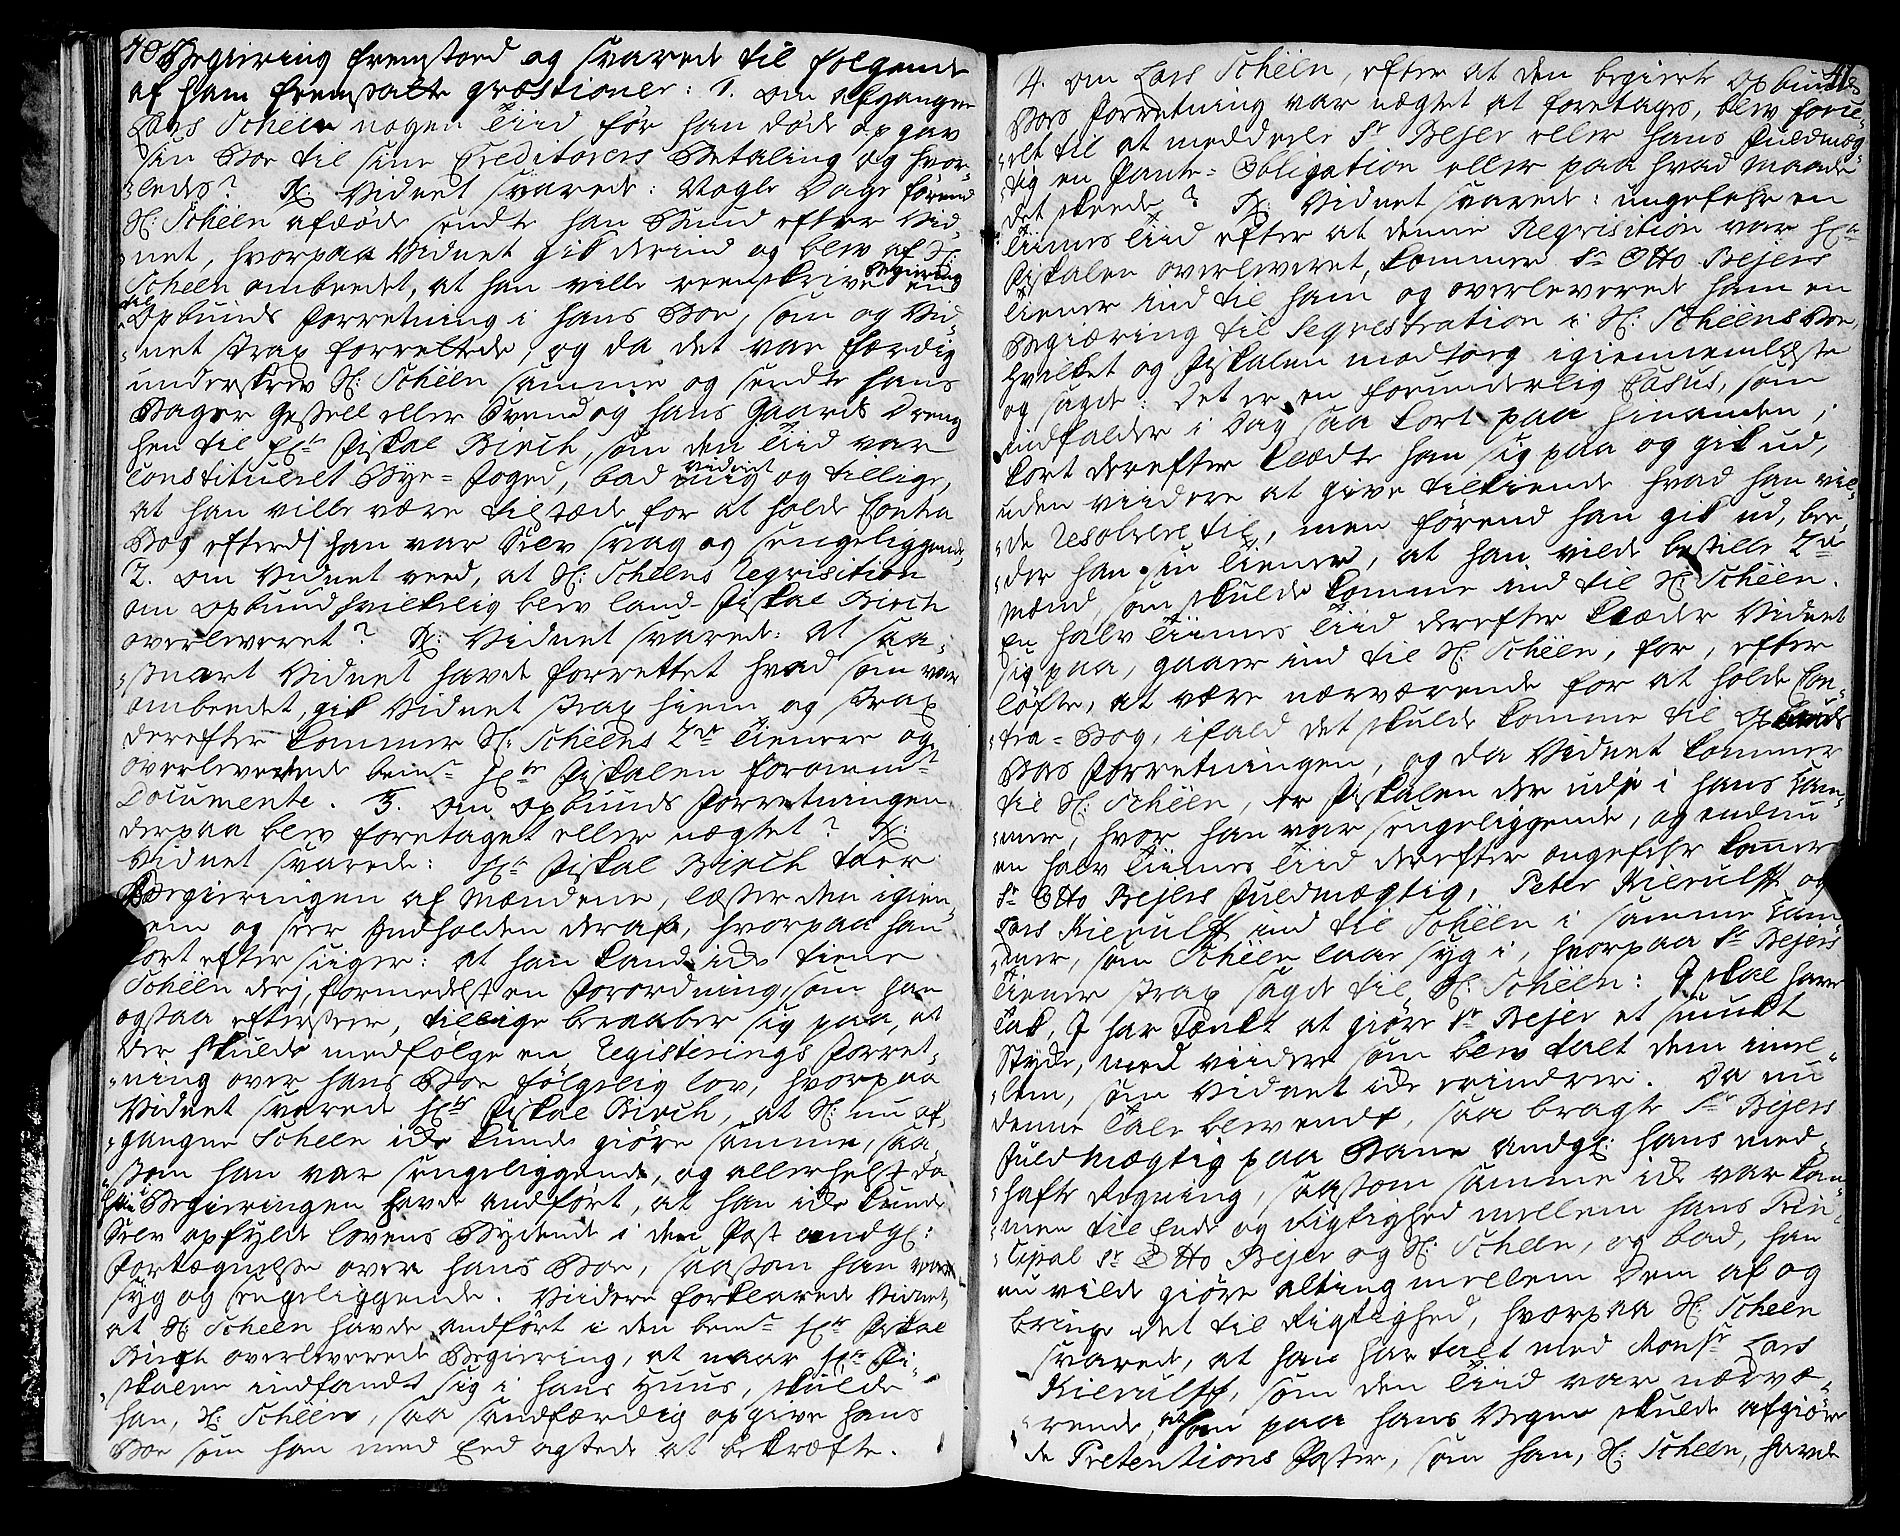 40
Begiering fremstoed og svarede til følgende
af ham fremsatte qvæstioner: 1. om afgangne
Lars Schëen nogen Tiid før han døde opgav
sin Boe til sine Creditorers Betaling og hvor-
ledes? Rx Vidnet svarede: Nogle Dage førend
Hr: Schëen afdøde sendte han Bud efter Vid-
net, hvorpaa Vidnet gik derind og blev af Hr:
Schëen ombeedet, at han ville reenskrive Begiering end
til
Opbuds Forretning i hans Boe, som og Vid-
net strax forrettede, og da det var færdig
underskrev Hr: Schëen samme og sendte hans
Bager Gesell eller Svend og hans Gaards Dreng
hen til Hr. Fiskal Birch, som den Tiid var
Constitueret Bye-Foged, bad vidnet mig og tillige,
at han ville være tilstæde for at holde Contra
Bog efterdj han var selv svag og sengeliggende,
2. om Vidnet veed, at Hr: Schëens Reqvisition
om Opbud hvilkelig blev land-Fiskal Birch
overleveret? Rx: Vidnet svarede: At saa-
snart Vidnet havde forrettet hvad som var
ombeedet, gik Vidnet strax hiem og strax
derefter kommer Hr: Schëens 2de Tienere og
overleverede bemte Hr. Fiskalen forommte
Documente. 3. om Opbuds Forretningen
derpaa blev foretaget eller nægtet? Rx:
Vidnet svarede: Hr. Fiskal Birch taer
Begieringen af Mændene, læser den igien-
nem og seer Indholden deraf, hvorpaa han
kort efter siiger: at han kand icke tiene
Schëen derj, formedelst en Forordning som han
ogsaa efterseer, tillige beraaber sig paa, at
der skulde medfølge en Registerings Forret-
ning over hans Boe følgelig lov, hvorpaa
Vidnet svarede Hr. Fiskal Birch, at Hr: nu af-
gangne Schëen icke kunde giøre samme, saa-
som han var sengeliggende, og allerhelst da
han i Begieringen havde andført, at han icke kunde
selv opfylde lovens Bydende i den Post andg:
Fortægnelse over hans Boe, saasom han var
syg og sengeliggende. Viidere forklarede Vidnet,
at Hr: Schëen havde andført i den bemte Hr. Fiskal
Birch overleverede Begiering, at naar Hr. Fi-
skalen indfandt sig i hans Huus, skulde
han, Hr: Schëen, saa sandfærdig opgive hans
Boe som han med Eed agtede at bekræfte.
41
4. om Lars Schëen, efter at den begierte Opbuds
Boes Forretning var nægtet at foretages, blev forle-
det til at meddeele Sr. Bejer eller hans Fuldmæg-
tig en Pante-Obligation eller paa hvad maade
det skeede? Rx: Vidnet svarede: ungefehr en
Tiimes Tiid efter at denne Reqvisition var Hr.
Fiskalen overleveret, kommer Sr. Otto Bejers
Tiener ind til ham og overleverede ham en
Begiæring til Seqvestration i Hr: Schëens Boe,
hvilket og Fiskalen modtog igiennemlæste
og sagde: Det er en forunderlig Casus, som
indfalder i Dag saa kort paa hinanden;
kort derefter klædte han sig paa og gik ud,
uden viidere at give tilkiende hvad han vil-
de resolvere til, men førend han gik ud, bee-
der han sin Tiener, at han vilde bestille 2de
Mænd som skulde komme ind til Hr: Schëen.
En halv Tiimes Tiid derefter klæder Vidnet
sig paa, gaaer ind til Hr: Schëen, for, efter
løfte, at være nærværende for at holde Con-
tra-Bog, ifald det skulde komme til Opbuds
Boes Forretningen, og da Vidnet kommer
til Hr: Schëen, er Fiskalen der ude i hans Kam-
mer, hvor han var sengeliggende, og endnu
en halv Tiimes Tiid derefter ongefehr kommer
Sr. Otto Bejers Fuldmægtig, Peter Kierulff og
Lars Kierulff ind til Schëen i samme Kam-
mer, som Schëen laae syg i, hvorpaa Sr. Bejers
Tiener strax sagde til Hr: Schëen: I skal have
Tak, I har tænkt at giøre Sr. Bejer et smukt
Stycke, med viidere som blev talt dem imel-
lem, som Vidnet icke erindrer. Da nu
denne Tale blev endt, saa bragte Sr. Bejers
Fuldmægtig paa Bane andg: hans med-
hafte Regning, saasom samme icke var kom-
men til Ende og Rigtighed mellem hans Prin-
cipal Sr. Otto Bejer og Hr: Schëen, og bad, han
nu vilde giøre alting mellem dem af og
bringe det til Rigtighed, hvorpaa Hr: Schëen
svarede, at han har talt med Monsr. Lars
Kierulff, som den Tiid var nærvæ-
rende, at han paa hans Vegne skulde afgiøre
de Pretentions Poster, som han, Hr: Schëen, havde